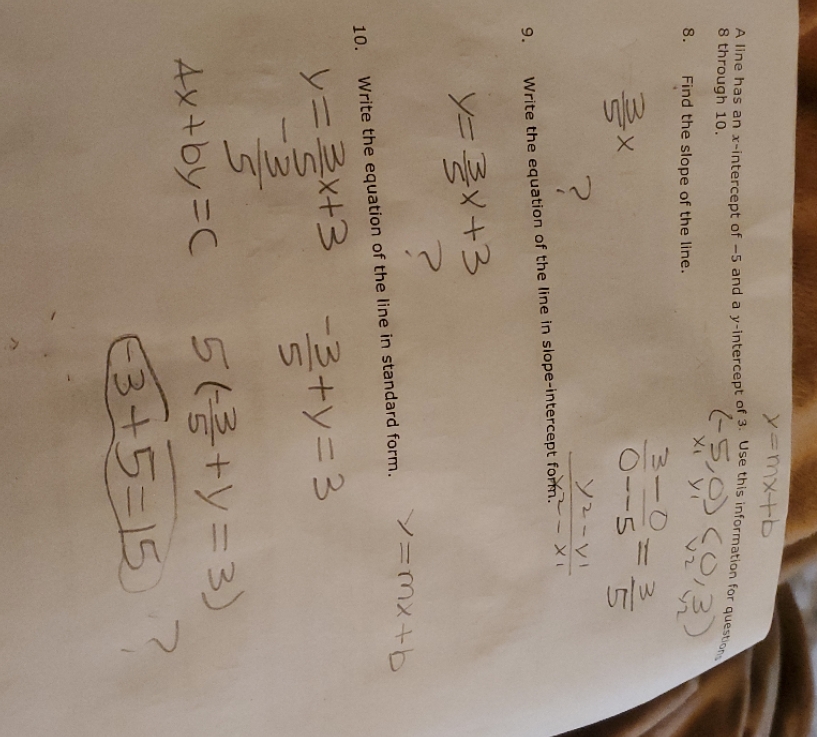 y=mx+b
A line has an x-intercept of −5 and a y-intercept of 3. Use this information for questions
8 through 10.
(-5,0) (0,3)
x1 y1 x2 y2
8. Find the slope of the line.
3/5 x
?
3-0/0--5 = 3/5
y2-y1/x2-x1
9. Write the equation of the line in slope-intercept form.
y=3/5x+3
?
10. Write the equation of the line in standard form.
y=mx+b
y=3/5x+3
-3/5
-3/5+y=3
Ax+by=c
5(-3/5+y=3)
-3+5=15 ?